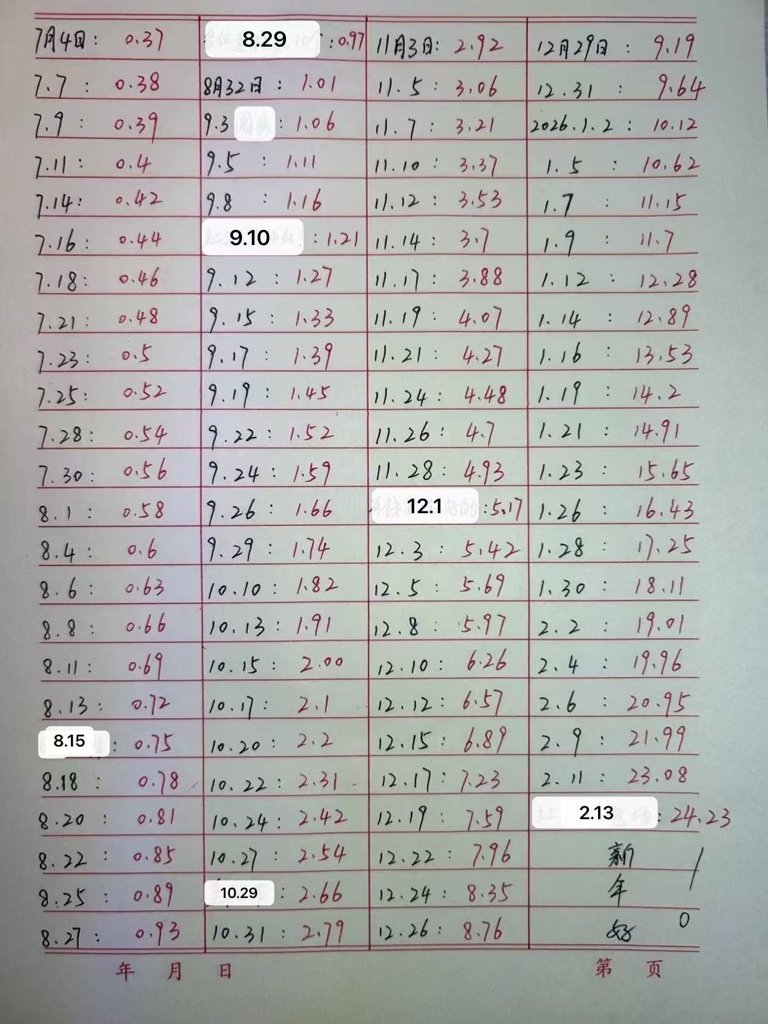 7月4日: 0.37
7.7: 0.38
7.9: 0.39
7.11: 0.4
7.14: 0.42
7.16: 0.44
7.18: 0.46
7.21: 0.48
7.23: 0.5
7.25: 0.52
7.28: 0.54
7.30: 0.56
8.1: 0.58
8.4: 0.6
8.6: 0.63
8.8: 0.66
8.11: 0.69
8.13: 0.72
8.15: 0.75
8.18: 0.78
8.20: 0.81
8.22: 0.85
8.25: 0.89
8.27: 0.93
8.29: 0.97
8月32日: 1.01
9.3: 1.06
9.5: 1.11
9.8: 1.16
9.10: 1.21
9.12: 1.27
9.15: 1.33
9.17: 1.39
9.19: 1.45
9.22: 1.52
9.24: 1.59
9.26: 1.66
9.29: 1.74
10.10: 1.82
10.13: 1.91
10.15: 2.00
10.17: 2.1
10.20: 2.2
10.22: 2.31
10.24: 2.42
10.27: 2.54
10.29: 2.66
10.31: 2.79
11月3日: 2.92
11.5: 3.06
11.7: 3.21
11.10: 3.37
11.12: 3.53
11.14: 3.7
11.17: 3.88
11.19: 4.07
11.21: 4.27
11.24: 4.48
11.26: 4.7
11.28: 4.93
12.1: 5.17
12.3: 5.42
12.5: 5.69
12.8: 5.97
12.10: 6.26
12.12: 6.57
12.15: 6.89
12.17: 7.23
12.19: 7.59
12.22: 7.96
12.24: 8.35
12.26: 8.76
12月29日: 9.19
12.31: 9.64
2026.1.2: 10.12
1.5: 10.62
1.7: 11.15
1.9: 11.7
1.12: 12.28
1.14: 12.89
1.16: 13.53
1.19: 14.2
1.21: 14.91
1.23: 15.65
1.26: 16.43
1.28: 17.25
1.30: 18.11
2.2: 19.01
2.4: 19.96
2.6: 20.95
2.9: 21.99
2.11: 23.08
2.13: 24.23
新
年
好
年 月 日
第 页